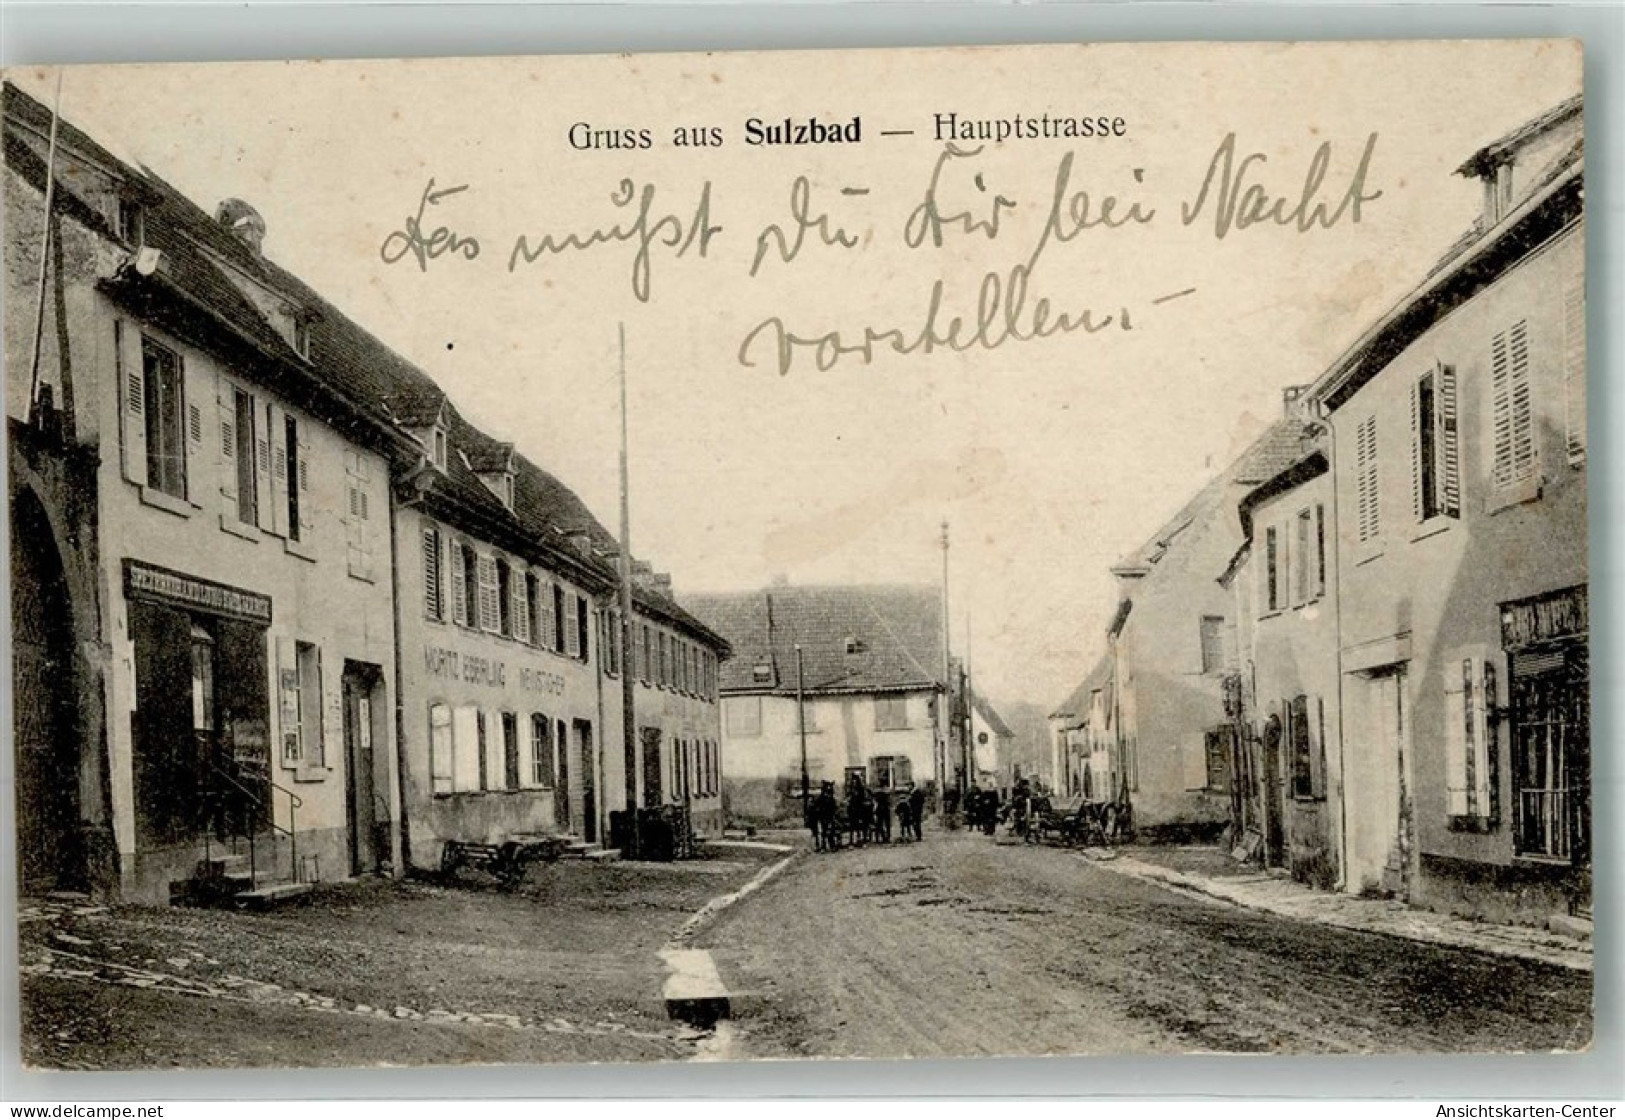 Gruss aus Sulzbad — Hauptstrasse
Das mußt Du Dir bei Nacht
vorstellen. –
MORITZ EBERLING
www.delcampe.net
posthalter
Ansichtskarten-Center